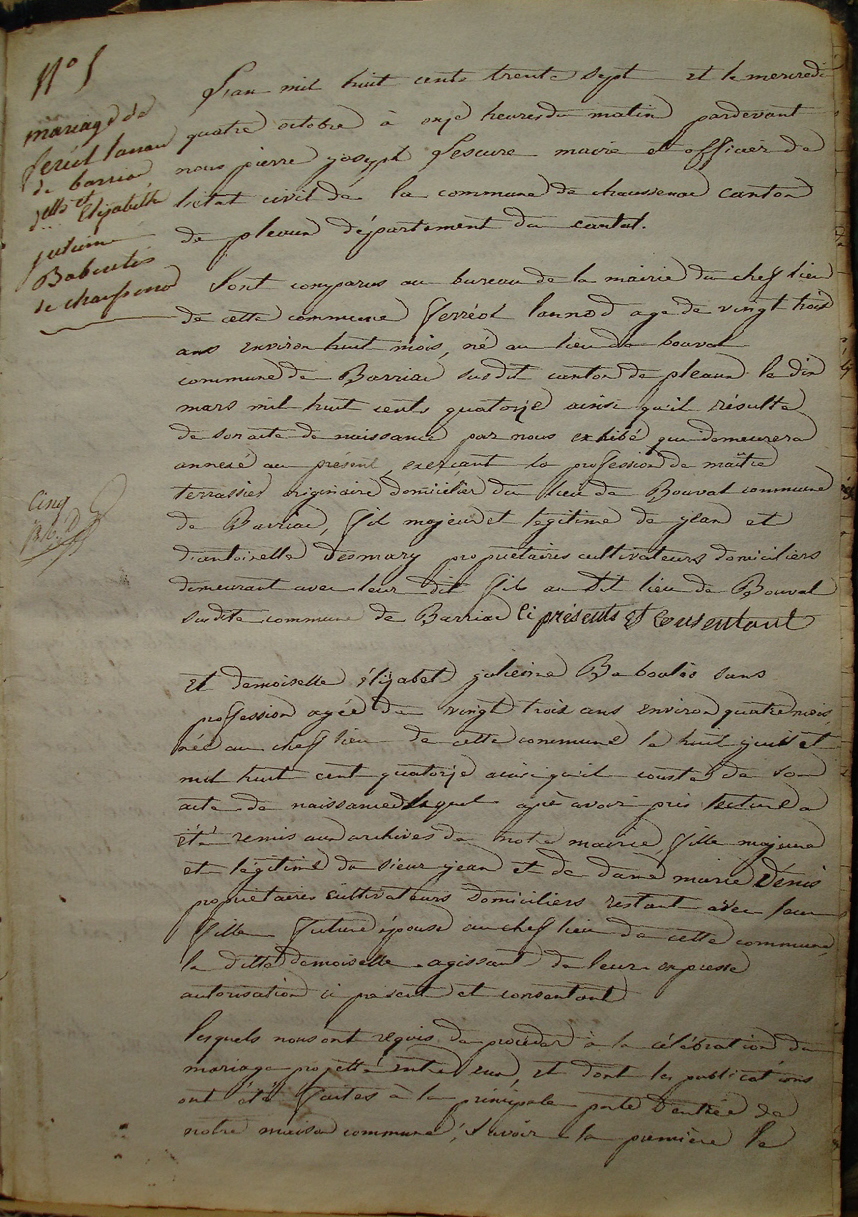 N° 5
mariage de
feréol lanau
de barria
d'lle et Elizabeth
julienne
Baboulès
de chaussenac
L'an mil huit cents trente sept et le mercredi
quatre octobre à onze heures du matin pardevant
nous pierre joseph Lescure maire et officier de
l'état civil de la commune de chaussenac canton
de pleaux département du cantal.
Sont comparus au bureau de la mairie du chef lieu
de cette commune ferréol lannod age de vingt trois
ans environ huit mois, né au lieu de bouval
commune de Barriac susdit canton de pleaux le dix
mars mil huit cents quatorze ainsi qu'il résulte
de son acte de naissance par nous exhibé qui demeurera
annexé au présent, exerçant la profession de maître
terrassier originaire domicilier du lieu de Bouval commune
de Barriac, fil majeur et légitime de jean et
d'antoinette desmary propriétaires cultivateurs domiciliers
demeurant avec leur dit fil au dit lieu de Bouval
susdite commune de Barriac ci présents et consentant
Cinq
Et demoiselle élizabet julienne Baboulès sans
profession agée de vingt trois ans environ quatre mois,
née au chef lieu de cette commune le huit juillet
mil huit cent quatorze ainsi qu'il conste de son
acte de naissance lequel aprè avoir pris lecture a
été remis aux archives de notre mairie fille majeure
et légitime du sieur jean et de dame marie Dénis
propriétaires cultivateurs domiciliers restant avec leur
fille future épouse au chef lieu de cette commune,
la ditte demoiselle agissant de leur expresse
autorisation ci présent et consentant
Lesquels nous ont requis de procéder à la célébration du
mariage projetté entre eux, et dont les publications
ont été faites à la principale porte d'entrée de
notre maison commune, savoir la première le